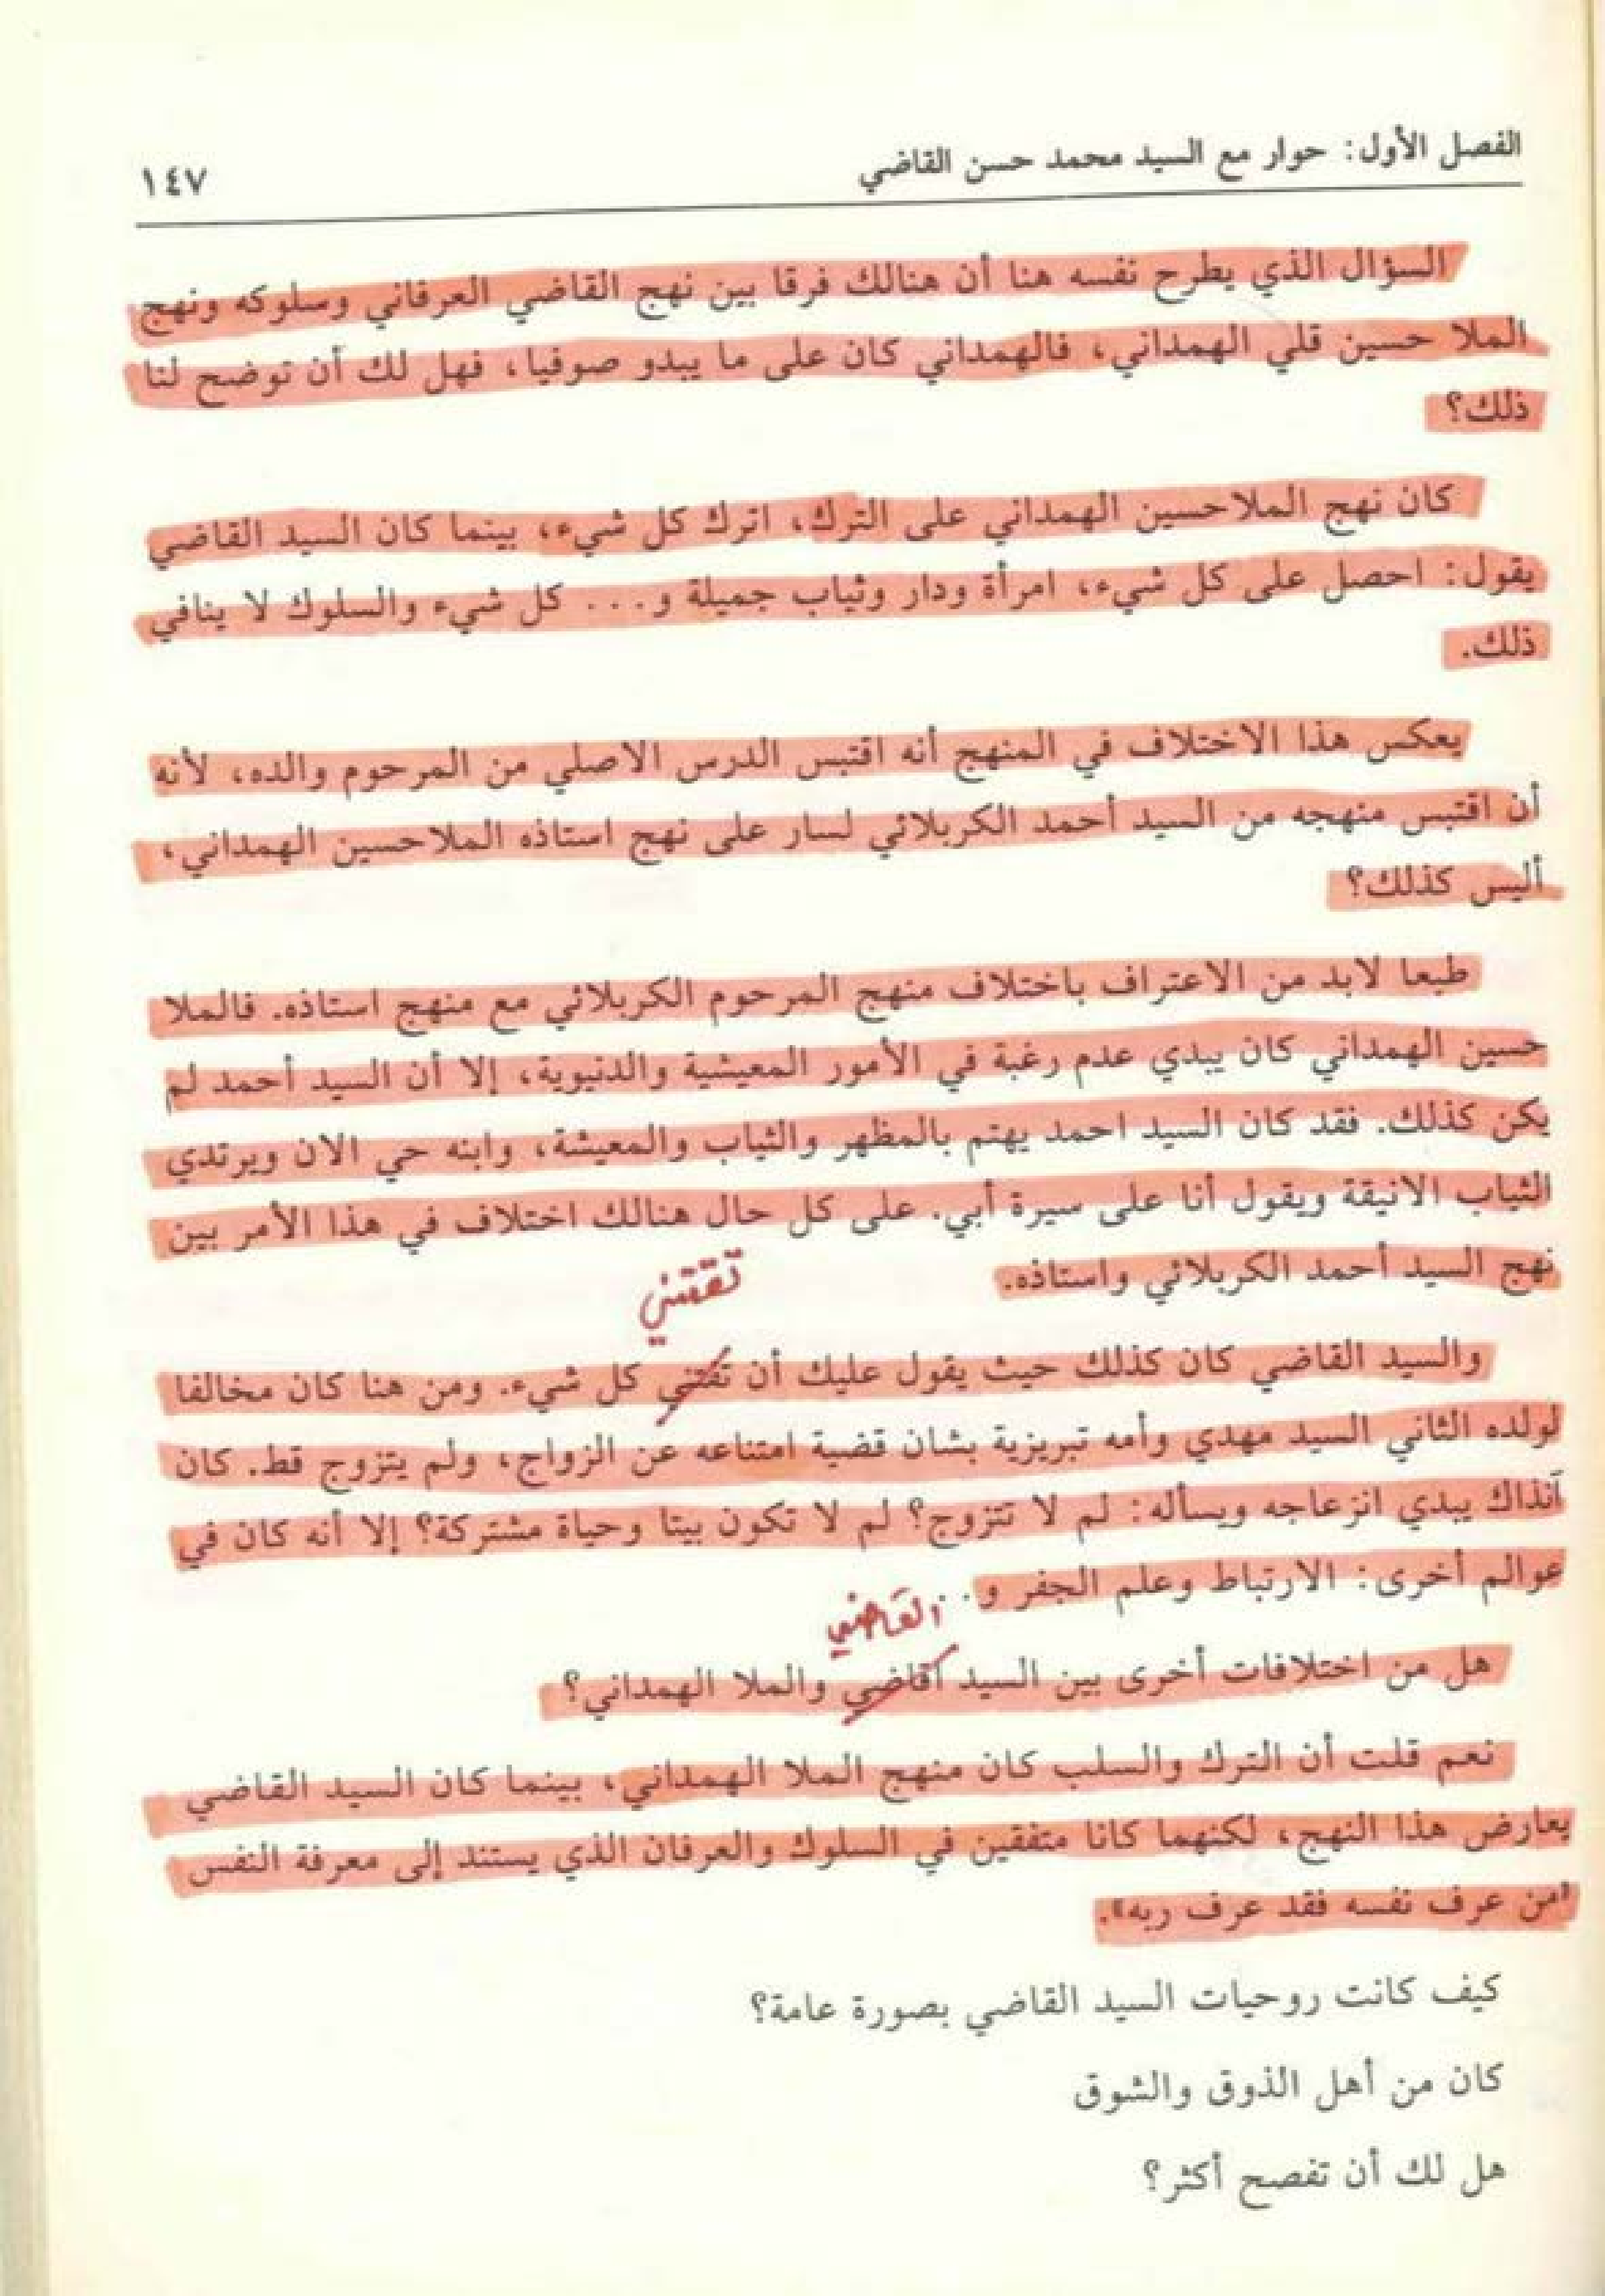 الفصل الأول: حوار مع السيد محمد حسن القاضي ١٤٧
السؤال الذي يطرح نفسه هنا أن هنالك فرقا بين نهج القاضي العرفاني وسلوكه ونهج
الملا حسين قلي الهمداني، فالهمداني كان على ما يبدو صوفيا، فهل لك أن توضح لنا
ذلك؟
كان نهج الملاحسين الهمداني على الترك، اترك كل شيء، بينما كان السيد القاضي
يقول: احصل على كل شيء، امرأة ودار وثياب جميلة و... كل شيء والسلوك لا ينافي
ذلك.
يعكس هذا الاختلاف في المنهج أنه اقتبس الدرس الاصلي من المرحوم والده، لأنه
أن اقتبس منهجه من السيد أحمد الكربلائي لسار على نهج استاذه الملاحسين الهمداني،
أليس كذلك؟
طبعا لابد من الاعتراف باختلاف منهج المرحوم الكربلائي مع منهج استاذه. فالملا
حسين الهمداني كان يبدي عدم رغبة في الأمور المعيشية والدنيوية، إلا أن السيد أحمد لم
يكن كذلك. فقد كان السيد احمد يهتم بالمظهر والثياب والمعيشة، وابنه حي الان ويرتدي
الثياب الانيقة ويقول أنا على سيرة أبي. على كل حال هنالك اختلاف في هذا الأمر بين
نهج السيد أحمد الكربلائي واستاذه.
تقتني
والسيد القاضي كان كذلك حيث يقول عليك أن تفتني كل شيء. ومن هنا كان مخالفا
لولده الثاني السيد مهدي وأمه تبريزية بشان قضية امتناعه عن الزواج، ولم يتزوج قط. كان
آنذاك يبدي انزعاجه ويسأله: لم لا تتزوج؟ لم لا تكون بيتا وحياة مشتركة؟ إلا أنه كان في
عوالم أخرى: الارتباط وعلم الجفر و...
القاضي
هل من اختلافات أخرى بين السيد اقاضي والملا الهمداني؟
نعم قلت أن الترك والسلب كان منهج الملا الهمداني، بينما كان السيد القاضي
يعارض هذا النهج، لكنهما كانا متفقين في السلوك والعرفان الذي يستند إلى معرفة النفس
«من عرف نفسه فقد عرف ربه».
كيف كانت روحيات السيد القاضي بصورة عامة؟
كان من أهل الذوق والشوق
هل لك أن تفصح أكثر؟